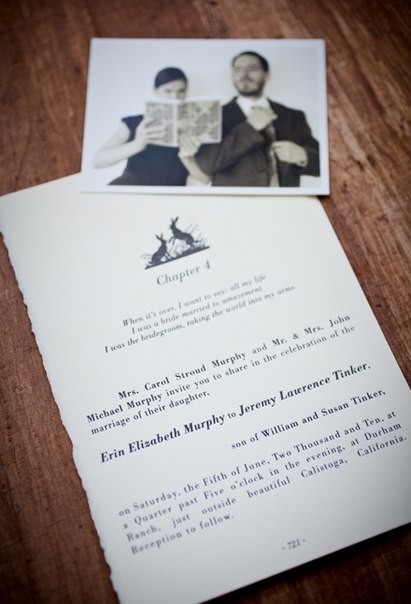 Chapter 4
When it's over, I want to say: all my life
I was a bride married to amazement
I was the bridegroom, taking the world into my arms.
Mrs. Carol Stroud Murphy and Mr. & Mrs. John
Michael Murphy invite you to share in the celebration of the
marriage of their daughter,
Erin Elizabeth Murphy to Jeremy Lawrence Tinker,
son of William and Susan Tinker,
on Saturday, the Fifth of June, Two Thousand and Ten- at
a Quarter past Five o'clock in the evening, at Durham
Ranch, just outside beautiful Calistoga, California.
Reception to follow.
- 721 -